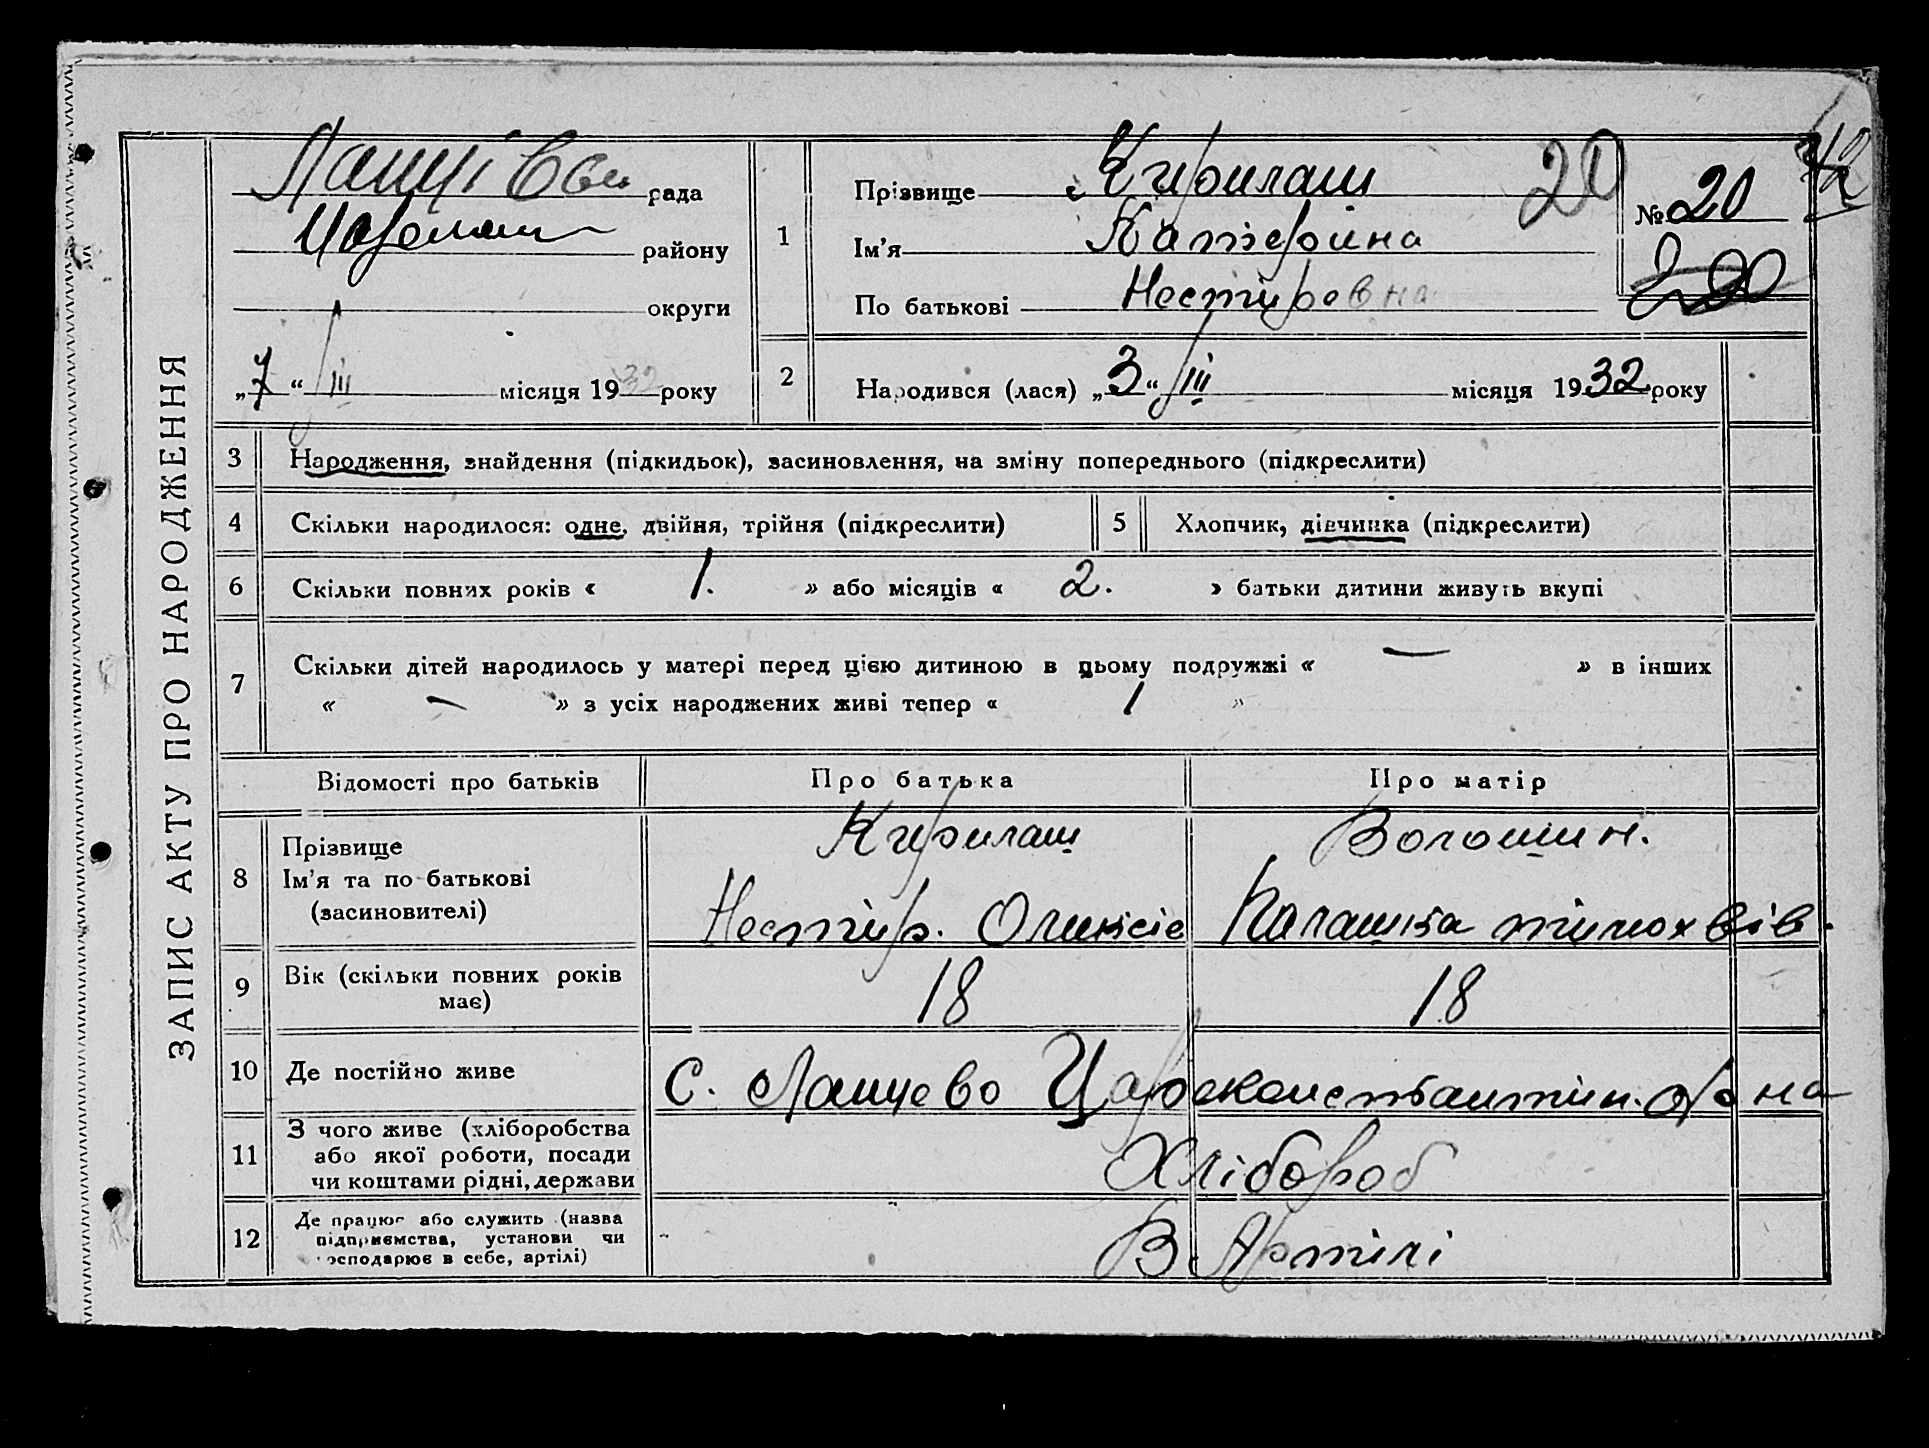 ЗАПИС АКТУ ПРО НАРОДЖЕННЯ
рада
району
округи
„7“ III місяця 1932 року
1
Прізвище Кирилаш
Ім'я Катерина
По батькові Нестировна
20
№ 20
200
2 Народився (лася) „3“ III місяця 1932 року
3 Народження, знайдення (підкидьок), засиновлення, на зміну попереднього (підкреслити)
4 Скільки народилося: одне, двійня, трійня (підкреслити) 5 Хлопчик, дівчинка (підкреслити)
6 Скільки повних років « 1. » або місяців « 2. » батьки дитини живуть вкупі
7 Скільки дітей народилось у матері перед цією дитиною в цьому подружжі « — » в інших
« — » з усіх народжених живі тепер « 1 »
Відомості про батьків Про батька Про матір
8 Прізвище Кирилаш Волошин.
Ім'я та по батькові Нестир. Олексіє Палашка тимохвів.
(засиновителі)
9 Вік (скільки повних років має) 18 18
10 Де постійно живе с. Ланцево Цареконстантин. р-на
11 З чого живе (хліборобства
або якої роботи, посади
чи коштами рідні, держави Хлібороб
12 Де працює або служить (назва
підприємства, установи чи
господарює в себе, артілі) В. Артілі